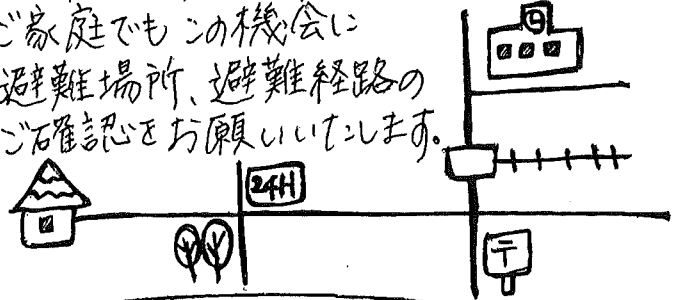 ご家庭でもこの機会に
避難場所、避難経路の
ご確認をお願いいたします。
24H
〒